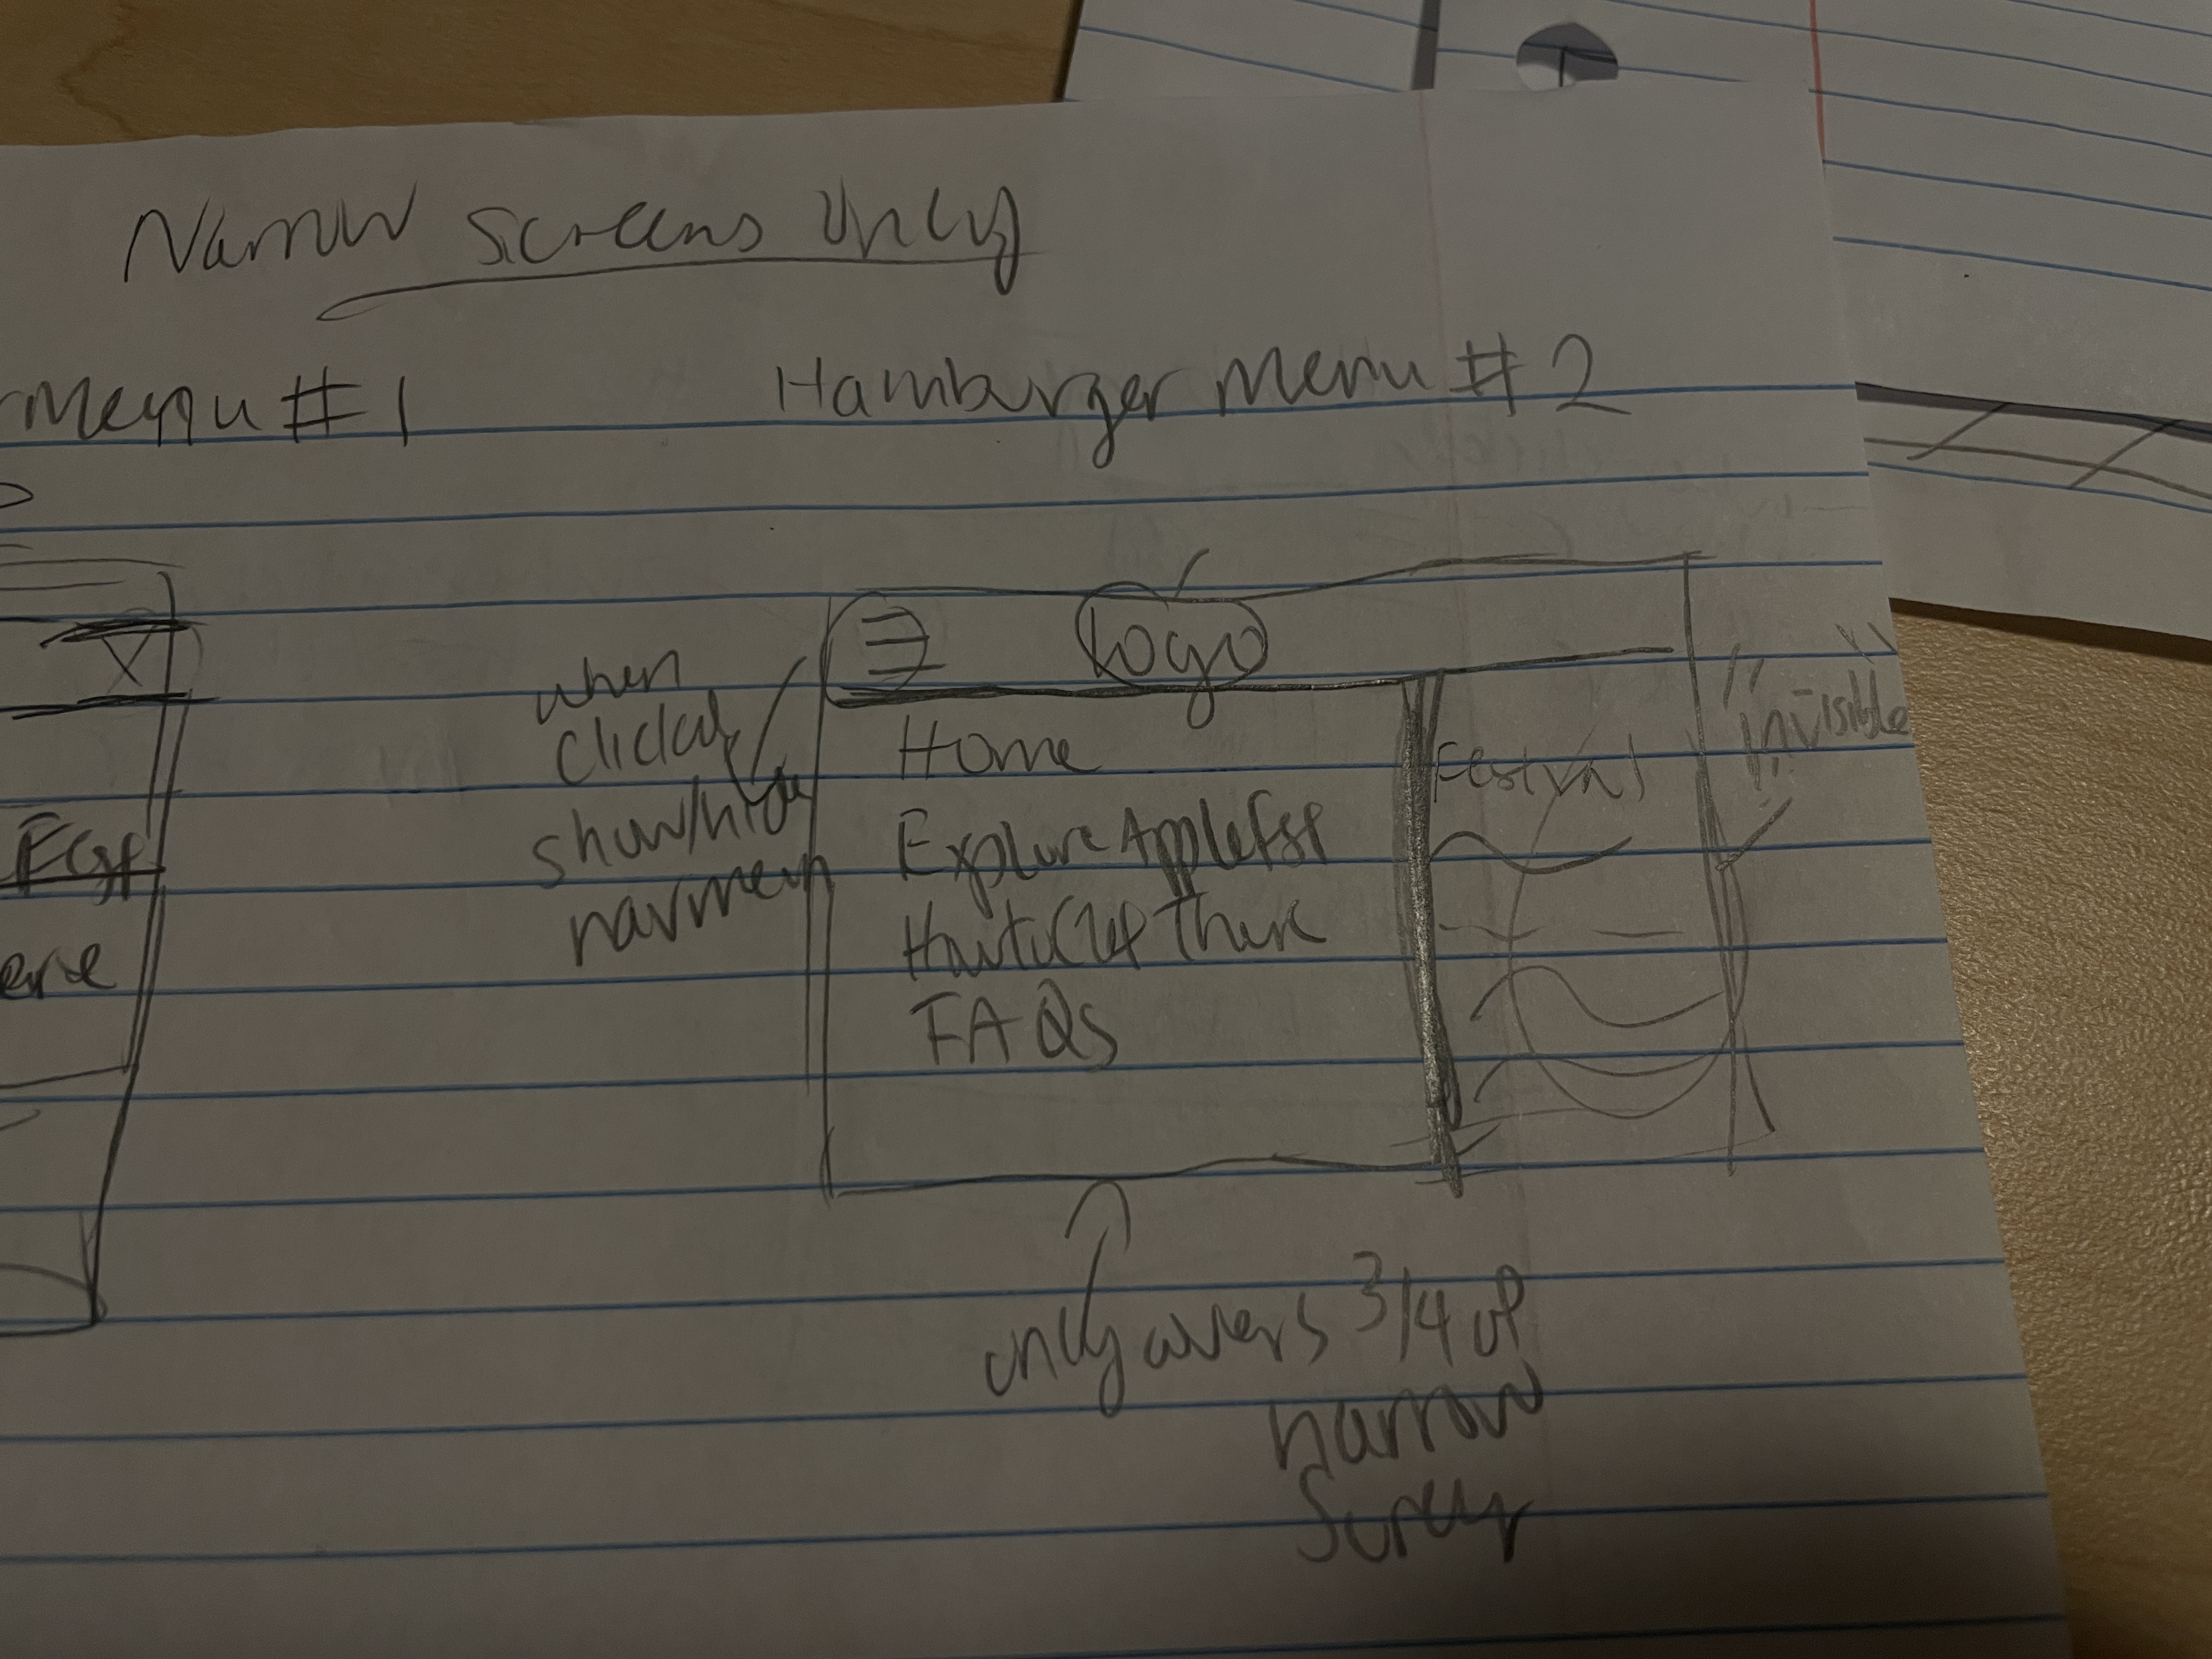 Narrow screens only
Menu #1
Hamburger Menu #2
X
Logo
when
clicked
show/hide
navmenu
Home
Explore AppleFest
How to Get There
FAQs
Festival
"invisible"
Fest
ere
only covers 3/4 of
narrow
screen